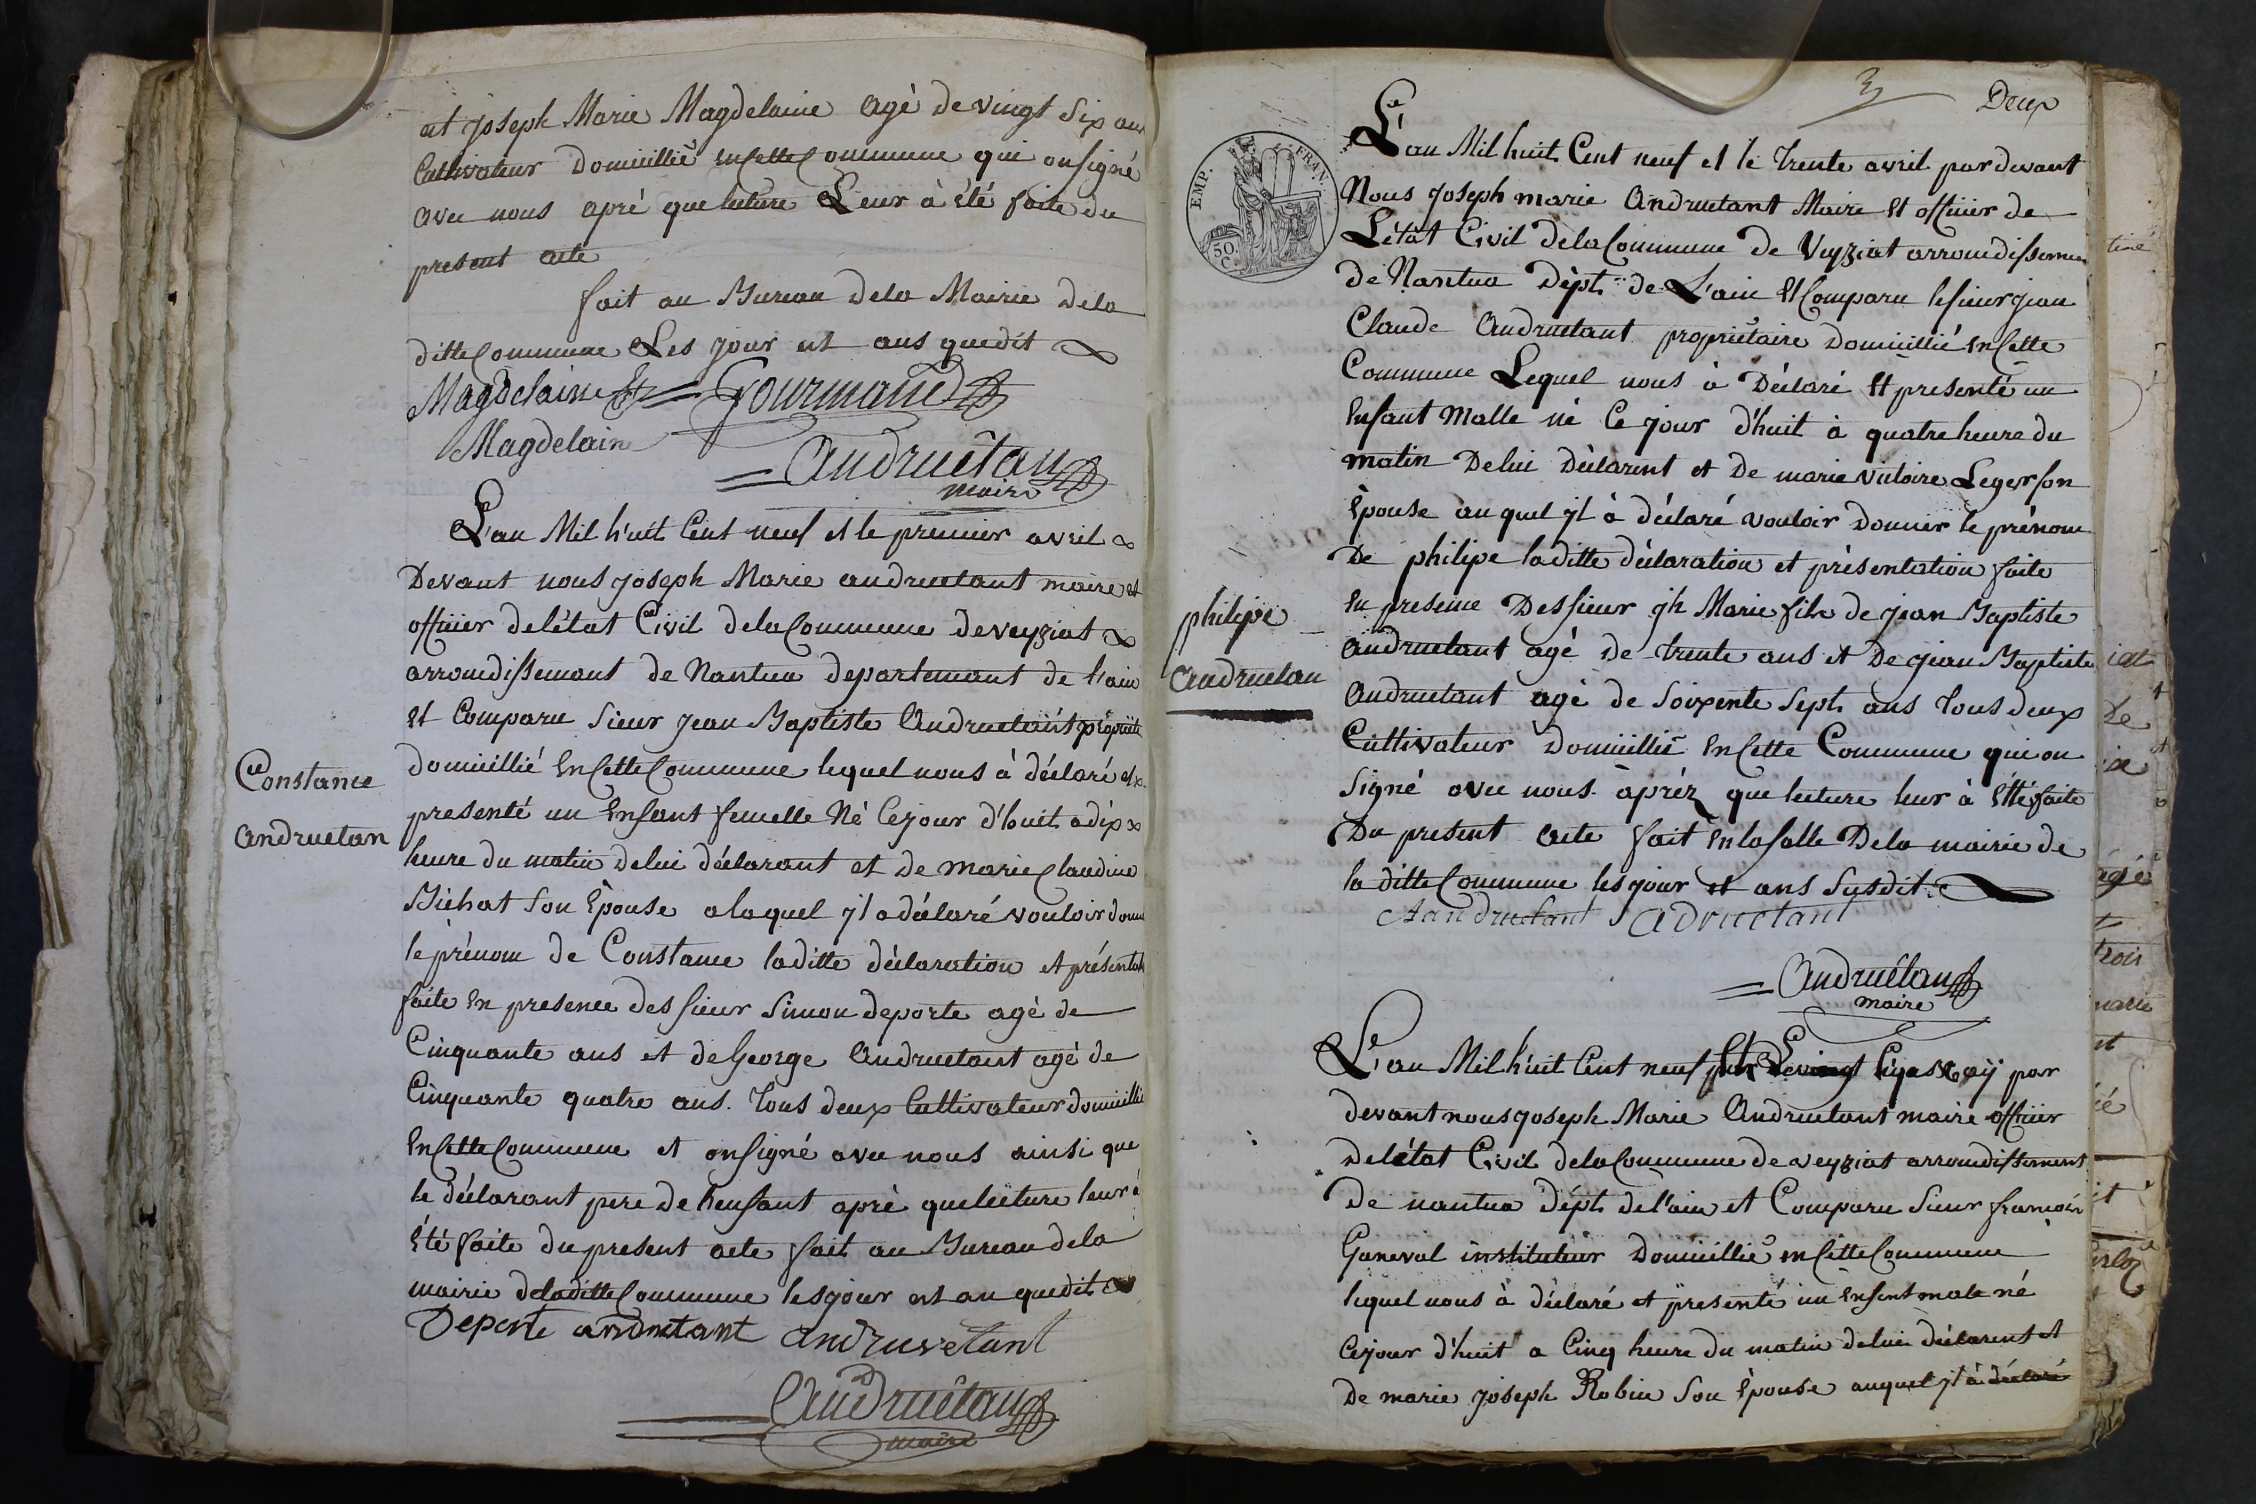 et joseph Marie Magdelaine agé de vingt six ans
Cultivateur Domicillié en cette Commune qui on signé
avec nous apré que lecture Leur à été faite du
present acte
fait au Bureau de la Mairie de la
ditte Commune Les jour et ans que dit
Magdelaine Gourmand
Magdelain
Andruétan
maire
L'an Mil huit Cent neuf et le premier avril
Devant nous joseph Marie andruetant maire et
officier de l'état Civil de la Commune de veyziat
arrondissement de Nantua departement de l'ain
et Comparu sieur jean Baptiste Andruetant propriete
domicillié en cette Commune lequel nous à déclaré et
presenté un enfant femelle Né Ce jour d'huit a dix
heure du matin de lui déclarant et de marie Claudine
Michat son épouse a laquel yl a déclaré vouloir donne
le prénom de Constance laditte déclaration et présentat
faite en presence des sieur simon deporte agé de
Cinquante ans et de George Andruetant agé de
Cinquante quatre ans. tous deux Cultivateur domicillié
en cette Commune et on signé avec nous ainsi que
le déclarant pere de l'enfant apré que lecture leur à
été faite du present acte fait au Bureau de la
mairie de laditte Commune les jour et an que dit
Deporte andruetant andruvetant
Andruétan
maire
Constance
andruetan
3
Deux
EMP. FRAN.
50 C.
L'an Mil huit Cent neuf et le trente avril par devant
Nous joseph marie Andruetant Maire et officier de
L'état Civil de la Commune de Veyziat arrondissemen
de Nantua Dépt. de L'ain et Comparu le sieur jean
Claude Andruetant propriétaire Domicillié en Cette
Commune Lequel nous à Déclaré et presenté un
enfant Malle né Ce jour d'huit à quatre heure du
matin De lui Déclarent et De marie victoire Leger son
épouse auquel yl à déclaré vouloir donner le prénom
De philipe laditte déclaration et présentation faite
en presence Des sieur jh Marie fils de jean Baptiste
andruetant agé de trente ans et De jean Baptiste
Andruetant agé de soixente sept ans tous deux
Cultivateur Domicillié en Cette Commune qui on
signé avec nous apréz que lecture leur à été faite
Du present acte fait en la salle De la mairie de
la ditte Commune les jour et ans susdit
Aandruetant Adruetant
Andruétan
maire
philipe
Andruetan
L'an Mil huit Cent neuf May par
devant nous joseph Marie Andruetant maire officier
De l'état Civil de la Commune de veyziat arrondissement
De nantua dépt. de l'ain et Comparu sieur francois
Ganeval instituteur Domicillié en Cette Commune
lequel nous à déclaré et presenté un enfent male né
Ce jour d'huit a Cinq heure du matin de lui déclarent et
De marie joseph Robin son épouse auquel yl à déclaré